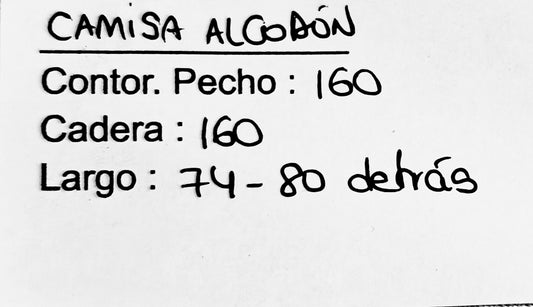 CAMISA ALGODÓN
Contor. Pecho : 160
Cadera : 160
Largo : 74 - 80 detrás